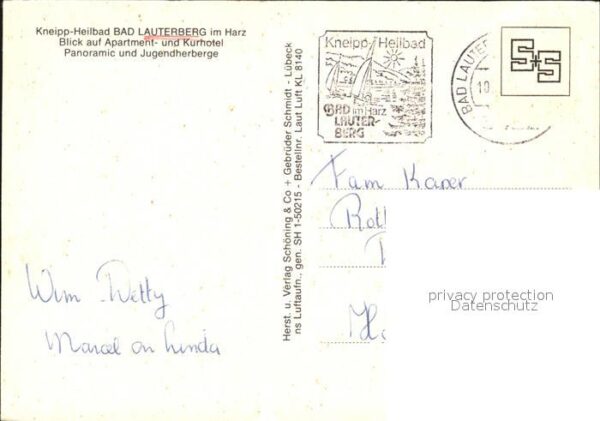 Kneipp-Heilbad BAD LAUTERBERG im Harz
Blick auf Apartment- und Kurhotel
Panoramic und Jugendherberge
Herst. u. Verlag Schöning & Co + Gebrüder Schmidt - Lübeck
ns Luftaufn., gen. SH 1-50215 - Bestellnr. Laut Luft KL 8140
Kneipp-Heilbad
BAD im Harz
LAUTER-
BERG
BAD LAUTE
10
Fam Kaper
privacy protection
Datenschutz
Wim Detty
Marcel en Linda